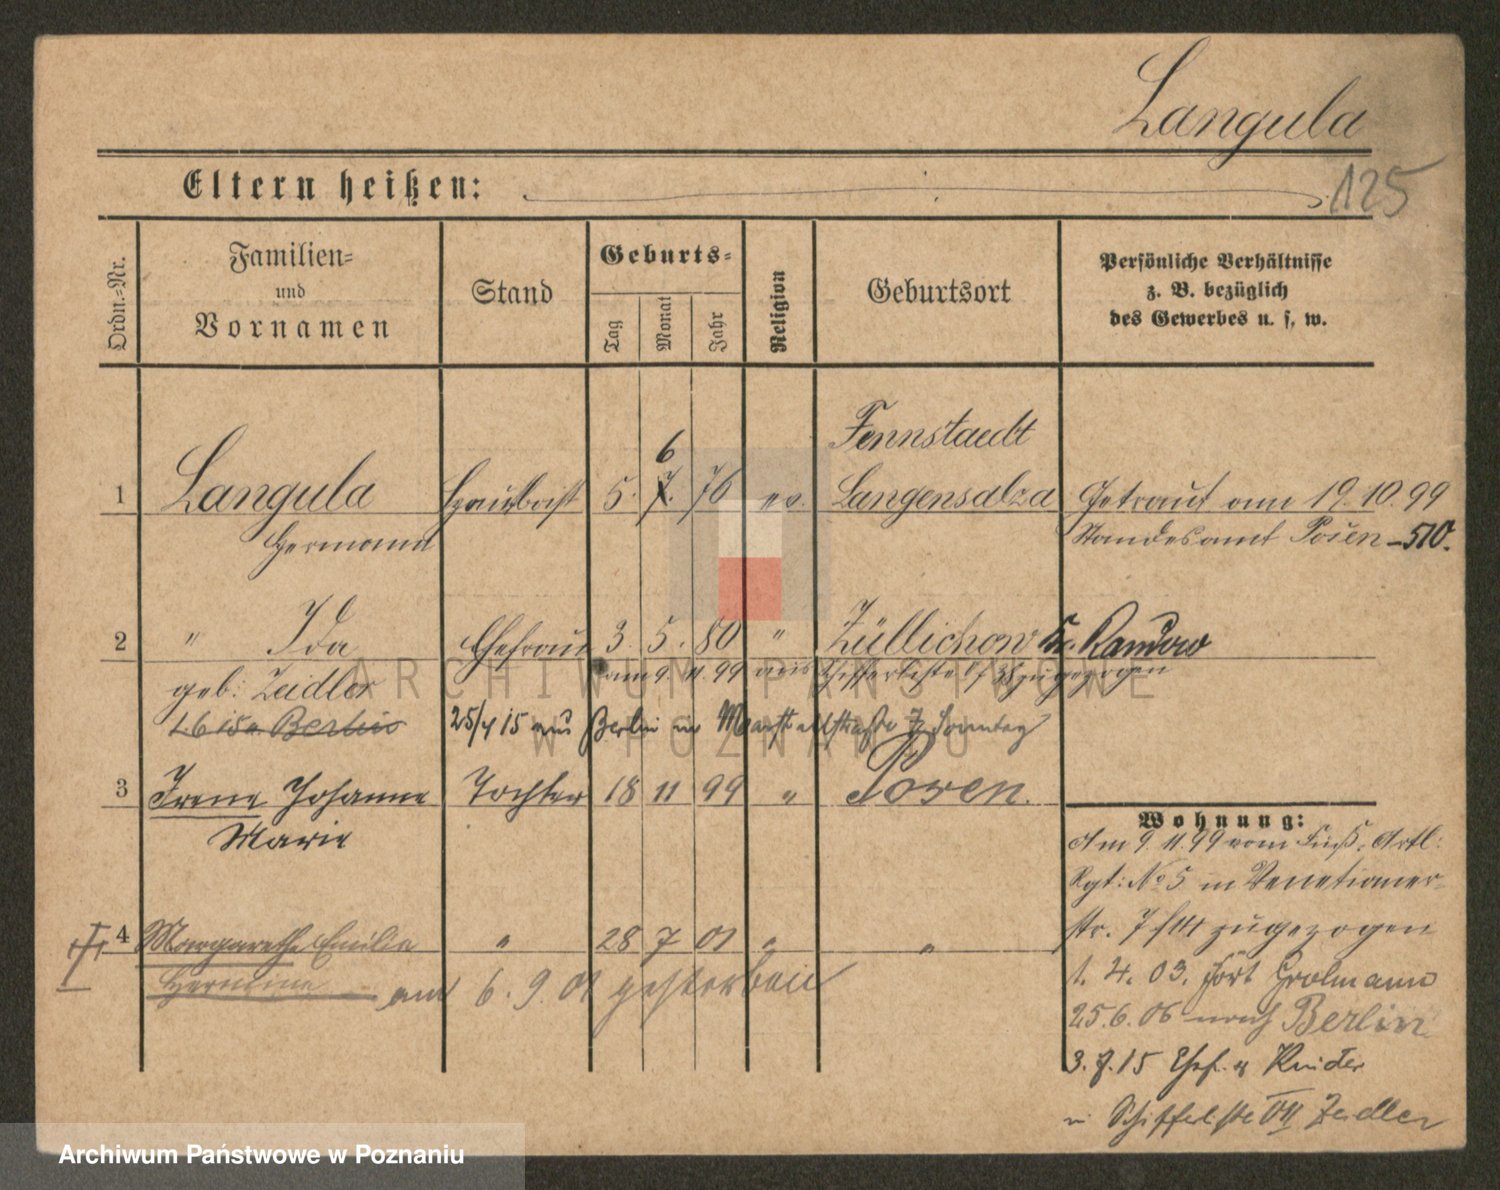 Langula
Eltern heißen:
125
Ordn.-Nr.
Familien-
und
Vornamen
Stand
Geburts-
Tag
Monat
Jahr
Religion
Geburtsort
Persönliche Verhältnisse
z. B. bezüglich
des Gewerbes u. s. w.
Tennstaedt
6
1 Langula Hautboist 5. 7. 76 ev. Langensalza Getraut am 19.10.99
Hermann Standesamt Posen - 510.
2 " Ida Ehefrau 3. 5. 80 " Züllichow Kr. Randow
geb: Zeidler am 9.11.99 aus zugezogen
Berlin 25/4 15 aus Berlin in
3 Irene Johanna Tochter 18 11 99 " Posen.
Marie
Wohnung:
Am 9.11.99 vom Fuß. Artl:
Rgt: No 5 in Venetianer-
str. 7 zugezogen
4 Margarethe Emilie " 28 7 01 " "
Hermine am 6.9.01 gestorben
1.4.03. Fort Grolmann
25.6.06 nach Berlin
3.7.15 Ehef. u Kinder
n Schifferstr VII Zeidler
ARCHIWUM PAŃSTWOWE
W POZNANIU
Archiwum Państwowe w Poznaniu